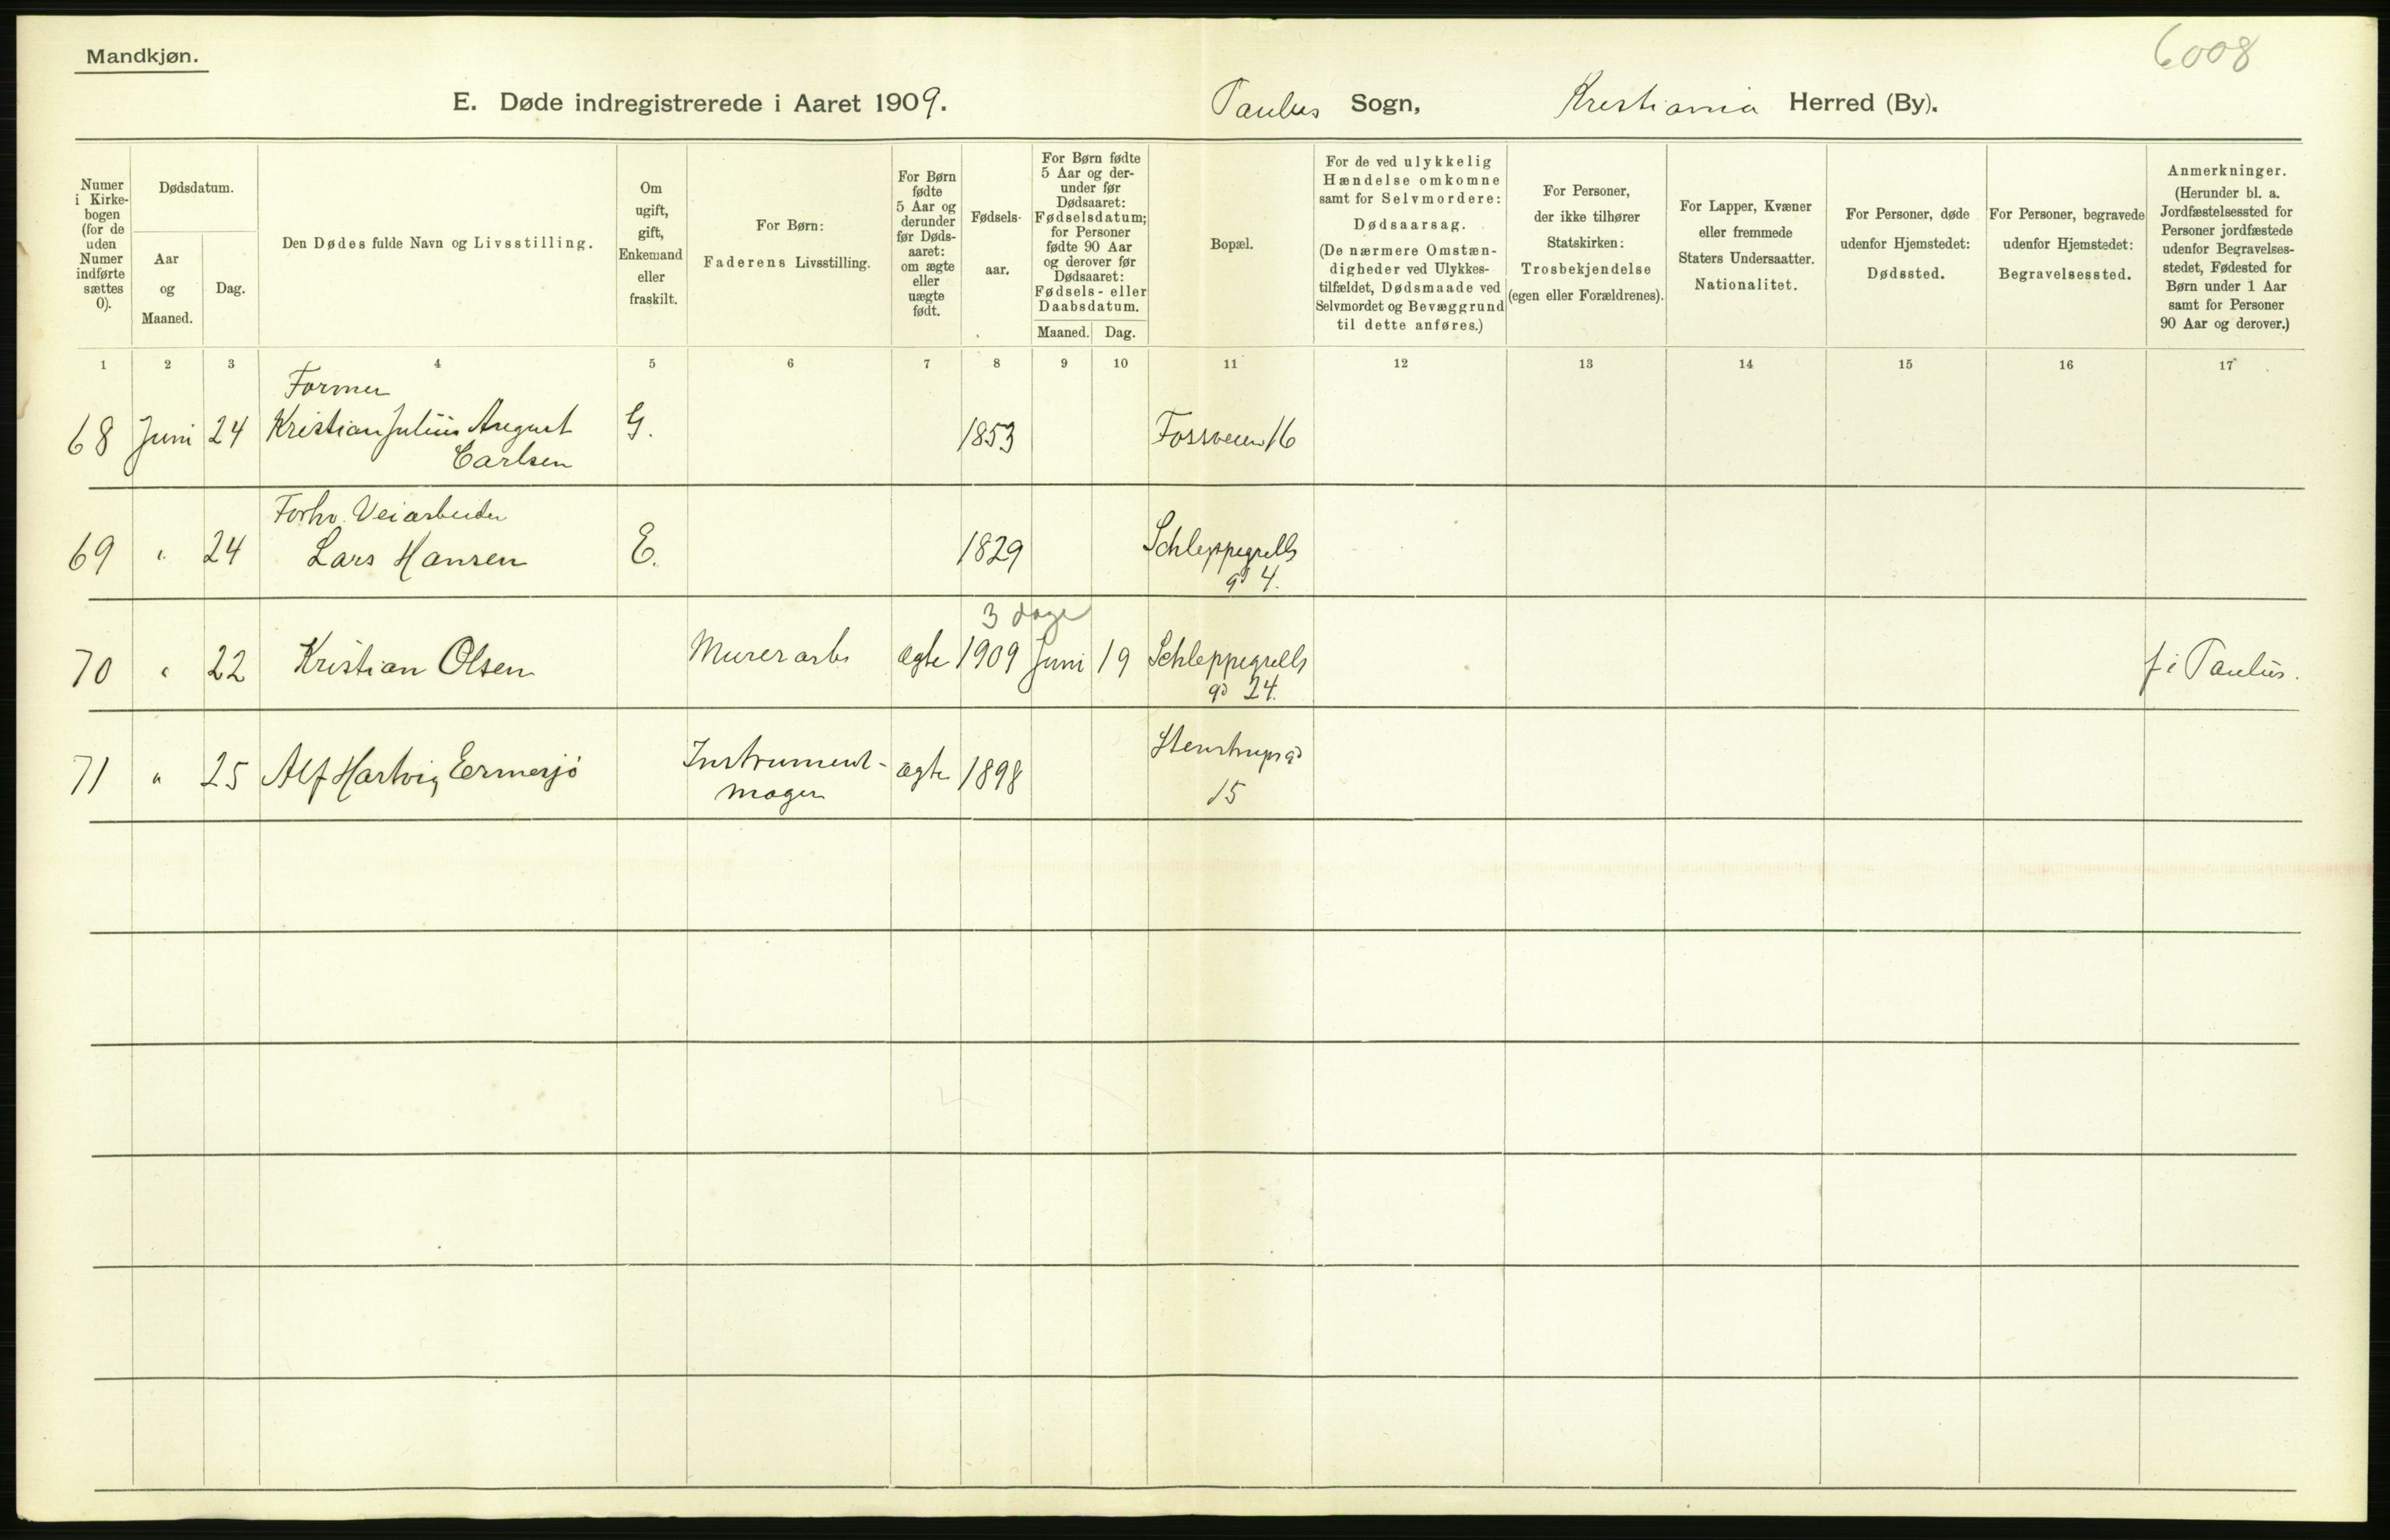 Mandkjøn.
6008
E. Døde indregistrerede i Aaret 1909. Paulus Sogn, Kristiania Herred (By).
Numer i Kirke-bogen (for de uden Numer indførte sættes 0).
Dødsdatum.
Aar og Maaned.
Dag.
Den Dødes fulde Navn og Livsstilling.
Om ugift, gift, Enkemand eller fraskilt.
For Børn:
Faderens Livsstilling.
For Børn fødte 5 Aar og derunder før Døds-aaret: om ægte eller uægte født.
Fødsels-aar.
For Børn fødte 5 Aar og der-under før Dødsaaret: Fødselsdatum; for Personer fødte 90 Aar og derover før Dødsaaret: Fødsels- eller Daabsdatum.
Maaned. Dag.
Bopæl.
For de ved ulykkelig Hændelse omkomne samt for Selvmordere:
Dødsaarsag.
(De nærmere Omstæn-digheder ved Ulykkes-tilfældet, Dødsmaade ved Selvmordet og Bevæggrund til dette anføres.)
For Personer, der ikke tilhører Statskirken:
Trosbekjendelse
(egen eller Forældrenes).
For Lapper, Kvæner eller fremmede Staters Undersaatter.
Nationalitet.
For Personer, døde udenfor Hjemstedet:
Dødssted.
For Personer, begravede udenfor Hjemstedet:
Begravelsessted.
Anmerkninger.
(Herunder bl. a. Jordfæstelsessted for Personer jordfæstede udenfor Begravelses-stedet, Fødested for Børn under 1 Aar samt for Personer 90 Aar og derover.)
1 2 3 4 5 6 7 8 9 10 11 12 13 14 15 16 17
Former
68 Juni 24 Kristian Julius August G. 1853 Fossveien 16
Carlsen
Forhv. Veiarbeider
69 " 24 Lars Hansen E. 1829 Schleppegrells
gd 4.
3 dage
70 " 22 Kristian Olsen Murerarb ægte 1909 Juni 19 Schleppegrells f i Paulus.
gd 24.
71 " 25 Alf Hartvig Ermesjø Instrument- ægte 1898 Stenstrupsgd
mager 15